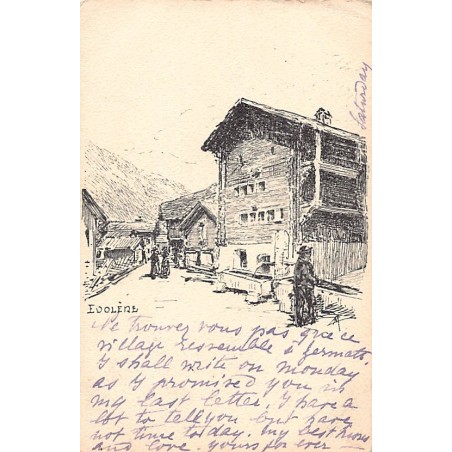 Saturday
EVOLÈNE
Ne trouvez vous pas que ce
village ressemble à Zermatt.
I shall write on monday
as I promised you in
my last letter. I have a
lot to tell you but have
not time today. my best
and love. yours for ever